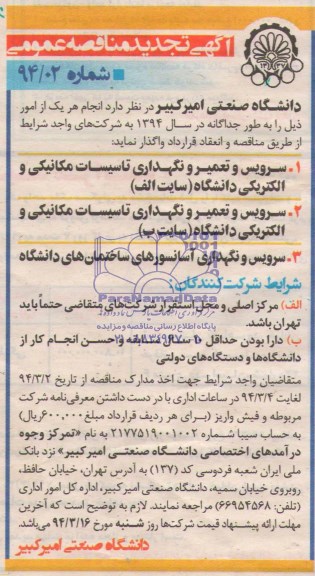 آگهی تجدید مناقصه عمومی
شماره ۹۴/۰۲
دانشگاه صنعتی امیرکبیر در نظر دارد انجام هر یک از امور
ذیل را به طور جداگانه در سال ۱۳۹۴ به شرکت‌های واجد شرایط
از طریق مناقصه و انعقاد قرارداد واگذار نماید:
۱. سرویس و تعمیر و نگهداری تاسیسات مکانیکی و
الکتریکی دانشگاه (سایت الف)
۲. سرویس و تعمیر و نگهداری تاسیسات مکانیکی و
الکتریکی دانشگاه (سایت ب)
۳. سرویس و نگهداری آسانسورهای ساختمان‌های دانشگاه
شرایط شرکت‌کنندگان:
ParsNamadData
الف) مرکز اصلی و محل استقرار شرکت‌های متقاضی حتماً باید
پایگاه اطلاع رسانی مناقصه و مزایده
تهران باشد.
ب) دارا بودن حداقل ۱۰ سال سابقه و حسن انجام کار از
دانشگاه‌ها و دستگاه‌های دولتی
متقاضیان واجد شرایط جهت اخذ مدارک مناقصه از تاریخ ۹۴/۳/۲
لغایت ۹۴/۳/۴ در ساعات اداری با در دست داشتن معرفی‌نامه شرکت
مربوطه و فیش واریز (برای هر ردیف قرارداد مبلغ ۶۰۰,۰۰۰ ریال)
به حساب سیبا شماره ۲۱۷۷۵۱۹۰۰۱۰۰۲ به نام «تمرکز وجوه
درآمدهای اختصاصی دانشگاه صنعتی امیرکبیر» نزد بانک
ملی ایران شعبه فردوسی کد (۱۳۷) به آدرس تهران، خیابان حافظ،
روبروی خیابان سمیه، دانشگاه صنعتی امیرکبیر، اداره کل امور اداری
(تلفن: ۶۶۹۵۴۵۶۸) مراجعه نمایند. لازم به توضیح است که آخرین
مهلت ارائه پیشنهاد قیمت شرکت‌ها روز شنبه مورخ ۹۴/۳/۱۶ می‌باشد.
دانشگاه صنعتی امیرکبیر